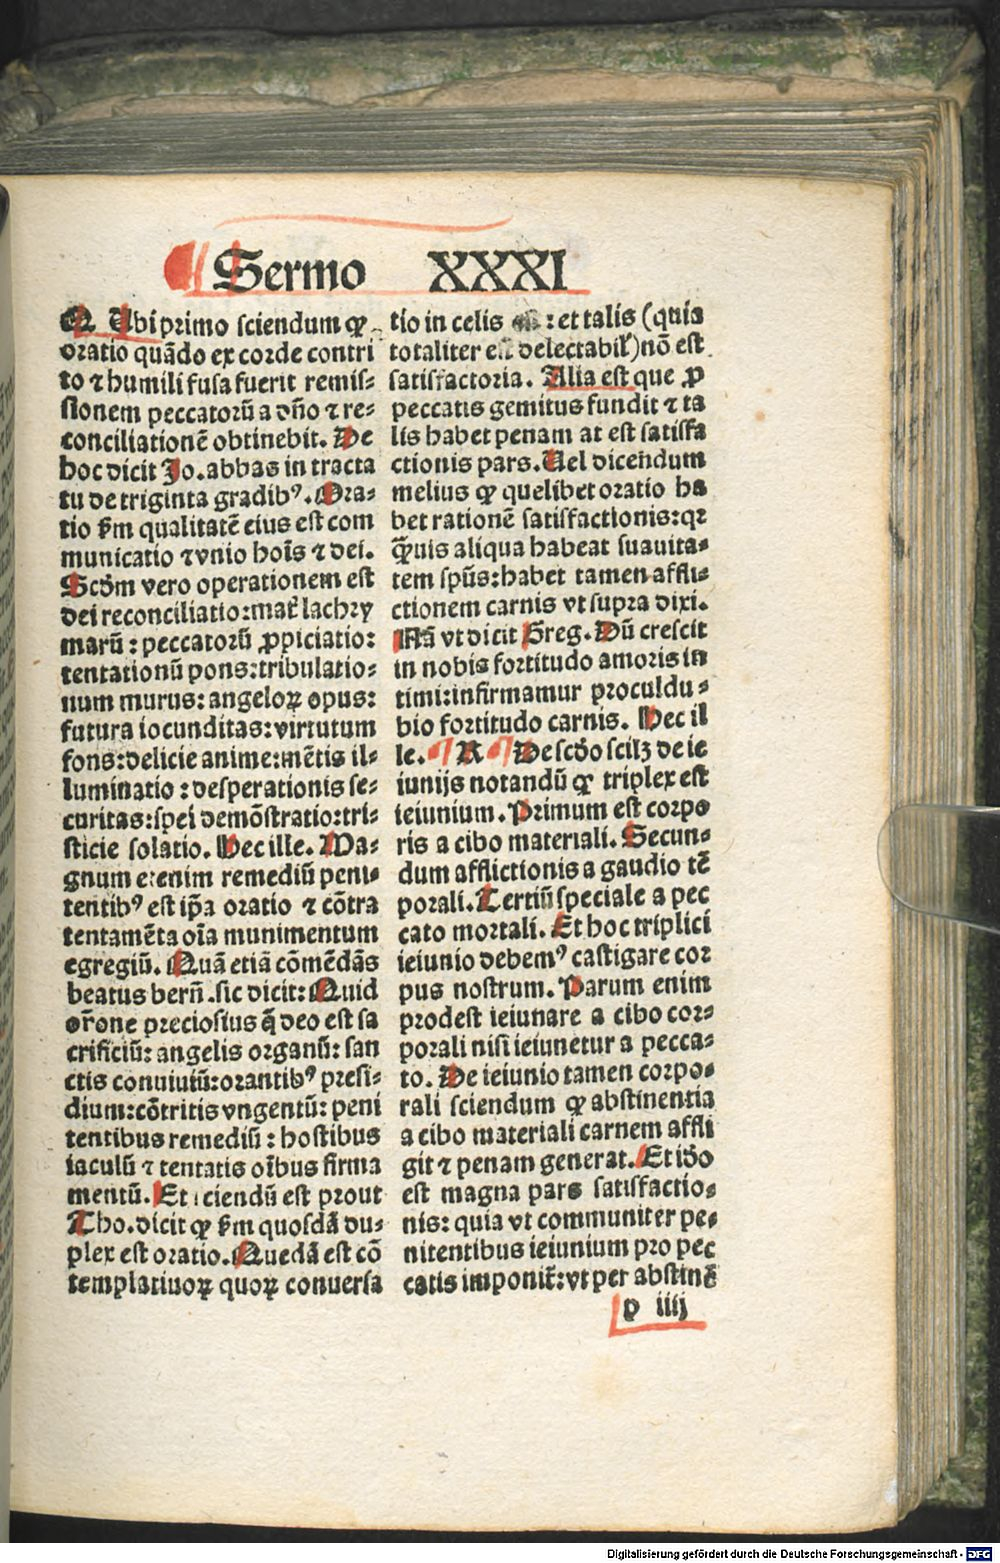 Sermo XXXI
Q Ubi primo sciendum ꝙ
oratio quãdo ex corde contri
to ⁊ humili fusa fuerit remis⸗
sionem peccatorũ a dño ⁊ re⸗
conciliationẽ obtinebit. De
hoc dicit Jo. abbas in tracta
tu de triginta gradibꝰ. Ora⸗
tio ẜm qualitatẽ eius est com
municatio ⁊ vnio hoĩs ⁊ dei.
Scðm vero operationem est
dei reconciliatio: mat̃ lachry
marũ: peccatorũ ꝓpiciatio:
tentationũ pons: tribulatio⸗
num murus: angeloꝝ opus:
futura iocunditas: virtutum
fons: delicie anime: mẽtis il⸗
luminatio: desperationis se⸗
curitas: spei demõstratio: tri⸗
sticie solatio. Hec ille. Ma⸗
gnum etenim remediũ peni⸗
tentibꝰ est ip̃a oratio ⁊ cõtra
tentamẽta oĩa munimentum
egregiũ. Quã etiã cõmẽdãs
beatus berñ. sic dicit: Quid
or̃one preciosius q̃ deo est sa
crificiũ: angelis organũ: san
ctis conuiuiũ: orantibꝰ presi⸗
dium: cõtritis vngentũ: peni
tentibus remediũ: hostibus
iaculũ ⁊ tentatis oĩbus firma
mentũ. Et sciendũ est prout
Tho. dicit ꝙ ẜm quosdã du⸗
plex est oratio. Quedã est cõ
templatiuoꝝ quoꝝ conuersa
tio in celis est: et talis (quia
totaliter est delectabil̃) nõ est
satisfactoria. Alia est que ꝓ
peccatis gemitus fundit ⁊ ta
lis habet penam at est satisfa
ctionis pars. Uel dicendum
melius ꝙ quelibet oratio ha
bet rationẽ satisfactionis: qꝛ
q̃uis aliqua habeat suauita⸗
tem spũs: habet tamen affli⸗
ctionem carnis vt supra dixi.
Nã vt dicit Greg. Dũ crescit
in nobis fortitudo amoris in
timi: infirmamur proculdu⸗
bio fortitudo carnis. Hec il
le. R De scðo scilꝫ de ie
iunijs notandũ ꝙ triplex est
ieiunium. Primum est corpo
ris a cibo materiali. Secun⸗
dum afflictionis a gaudio tẽ
porali. Tertiũ speciale a pec
cato mortali. Et hoc triplici
ieiunio debemꝰ castigare cor
pus nostrum. Parum enim
prodest ieiunare a cibo cor⸗
porali nisi ieiunetur a pecca⸗
to. De ieiunio tamen corpo⸗
rali sciendum ꝙ abstinentia
a cibo materiali carnem affli
git ⁊ penam generat. Et iðo
est magna pars satisfactio⸗
nis: quia vt communiter pe⸗
nitentibus ieiunium pro pec
catis imponit̃: vt per abstinẽ
p iiij
Digitalisierung gefördert durch die Deutsche Forschungsgemeinschaft - DFG